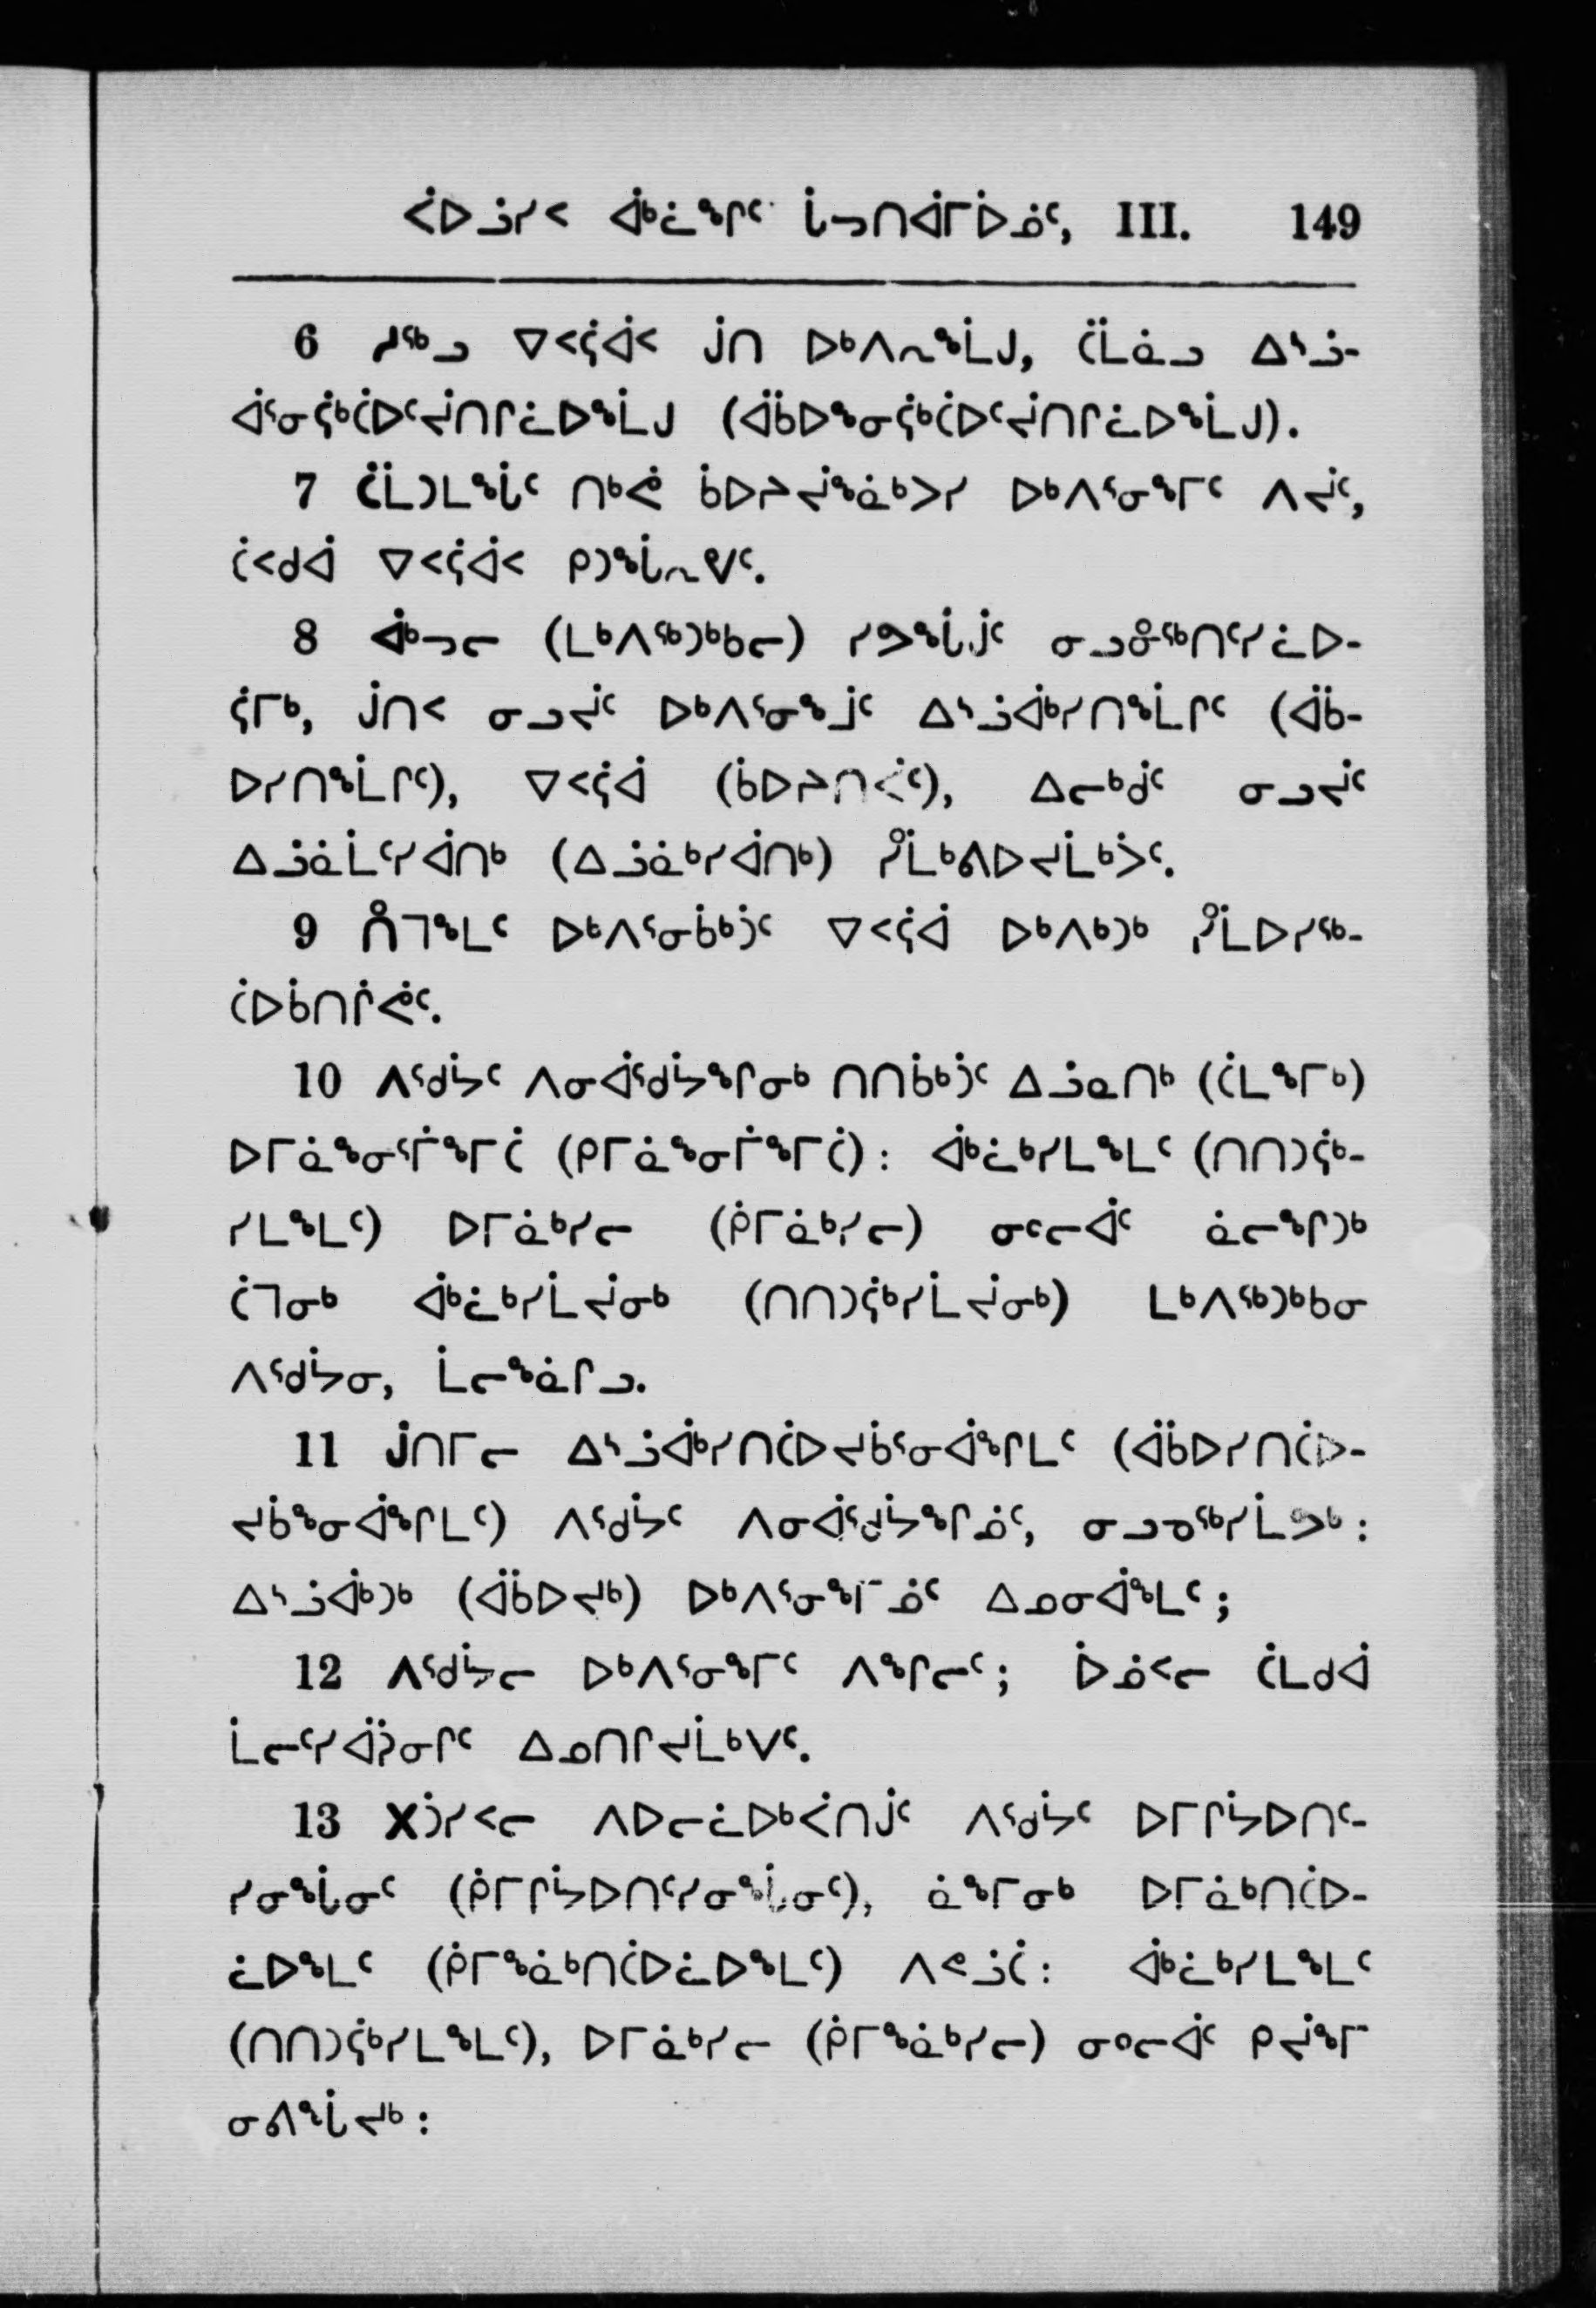 ᐹᐅᓘᓯᑉ ᐋᒃᓛᖏᑦ ᒑᓓᑎᐋᒥᐆᓅᑦ, III. 149
6 ᓱᖅᓗ ᐁᑉᕌᐋᑉ ᒎᑎ ᐅᒃᐱᕆᖕᒫᒍ, ᑖᒪᓇᓗ ᐃᔅᓘ-
ᐋᕐᓂᕌᒃᑖᐅᑦᔫᑎᒋᓛᐅᖕᒫᒍ (ᐋᑳᐅᖕᓂᕌᒃᑖᐅᑦᔫᑎᒋᓛᐅᖕᒫᒍ).
7 ᑖᒪᑐᒪᖕᒑᑦ ᑎᒃᕙ ᑳᐅᔨᔫᖕᓈᒃᐳᓯ ᐅᒃᐱᕐᓂᖕᒥᑦ ᐱᔫᑦ,
ᑖᑉᑯᐊ ᐁᑉᕌᐋᑉ ᑭᑐᖕᒑᕆᕓᑦ.
8 ᐋᒃᓓᓕ (ᒪᒃᐱᖅᑐᒃᑲᓕ) ᓯᕗᖕᒑᒎᑦ ᓂᓗᓈᖅᑎᑦᓯᓛᐅ-
ᕌᒥᒃ, ᒎᑎᑉ ᓂᓗᔫᑦ ᐅᒃᐱᕐᓂᖕᒎᑦ ᐃᔅᓘᐋᒃᓯᑎᖕᒫᒋᑦ (ᐋᑳ-
ᐅᓯᑎᖕᒫᒋᑦ), ᐁᑉᕌᐋ (ᑳᐅᔨᑎᐹᑦ), ᐃᓕᒃᑰᑦ ᓂᓗᔫᑦ
ᐃᓘᓈᒫᑦᓯᐋᑎᒃ (ᐃᓘᓈᒃᓯᐋᑎᒃ) ᓰᒪᒃᕕᐅᔪᒫᒃᐴᑦ.
9 ᑏᒣᖕᒪᑦ ᐅᒃᐱᕐᓂᑳᒃᑑᑦ ᐁᑉᕌᐋ ᐅᒃᐱᒃᑐᒃ ᓰᒪᐅᓯᖅ-
ᑖᐅᑳᑎᒌᕚᑦ.
10 ᐱᕐᑯᔭᑦ ᐱᓂᐋᕐᑯᔭᖕᒋᓂᒃ ᑎᑎᑳᒃᑑᑦ ᐃᓘᓇᑎᒃ (ᑖᒪᖕᒥᒃ)
ᐅᒥᓈᖕᓂᕐᒦᖕᒥᑖ (ᑭᒥᓈᖕᓂᒦᖕᒥᑖ): ᐋᒃᓛᒃᓯᒪᖕᒪᑦ (ᑎᑎᑐᕌᒃ-
ᓯᒪᖕᒪᑦ) ᐅᒥᓈᒃᓯᓕ (ᑮᒥᓈᒃᓯᓕ) ᓂᑦᓕᐋᑦ ᓈᓕᖕᒋᑐᒃ
ᑖᒣᓂᒃ ᐋᒃᓛᒃᓯᒫᔫᓂᒃ (ᑎᑎᑐᕌᒃᓯᒫᔫᓂᒃ) ᒪᒃᐱᖅᑐᒃᑲᓂ
ᐱᕐᑯᔭᓂ, ᒫᓕᖕᓈᒋᓗ.
11 ᒎᑎᒥᓕ ᐃᔅᓘᐋᒃᓯᑎᑖᐅᔪᑳᕐᓂᐋᖕᒋᒪᑦ (ᐋᑳᐅᓯᑎᑖᐅ-
ᔪᑳᖕᓂᐋᖕᒋᒪᑦ) ᐱᕐᑯᔭᑦ ᐱᓂᐋᕐᑯᔭᖕᒋᓅᑦ, ᓂᓗᓇᖅᓯᒫᕗᒃ:
ᐃᔅᓘᐋᒃᑐᒃ (ᐋᑳᐅᔪᒃ) ᐅᒃᐱᕐᓂᖕᒥᓅᑦ ᐃᓄᓂᐋᖕᒪᑦ;
12 ᐱᕐᑯᔭᓕ ᐅᒃᐱᕐᓂᖕᒥᑦ ᐱᖕᒋᓕᑦ; ᐆᓅᑉᓕ ᑖᒪᑯᐋ
ᒪᓕᑦᓯᐋᕈᓂᒋᑦ ᐃᓄᑎᒋᔪᒫᒃᐯᑦ.
13 Xᑑᓯᑉᓕ ᐱᐅᓕᓛᐅᒃᐹᑎᒎᑦ ᐱᕐᑯᔭᑦ ᐅᒥᒋᔭᐅᑎᑦ-
ᓯᓂᖕᒑᓂᑦ (ᑮᒥᒋᔭᐅᑎᑦᓯᓂᖕᒑᓂᑦ), ᓈᖕᒥᓂᒃ ᐅᒥᓈᒃᑎᑖᐅ-
ᓛᐅᖕᒪᑦ (ᑮᒥᖕᓈᒃᑎᑖᐅᓛᐅᖕᒪᑦ) ᐱᕝᓘᑖ: ᐋᒃᓛᒃᓯᒪᖕᒪᑦ
(ᑎᑎᑐᕌᒃᓯᒪᖕᒪᑦ), ᐅᒥᓈᒃᓯᓕ (ᑮᒥᖕᓈᒃᓯᓕ) ᓂᑦᓕᐋᑦ ᑭᔫᖕᒥ
ᓂᕕᖕᒑᔪᒃ: